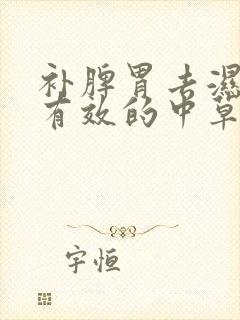 补脾胃去濕
有效的中草
宇恒